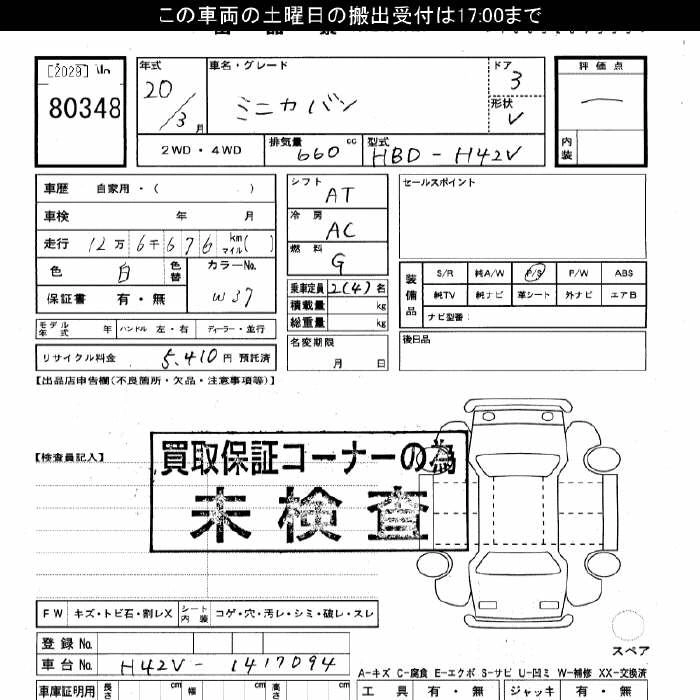 この車両の土曜日の搬出受付は17:00まで
80348
年式
20/3月
車名・グレード
ミニカバン
ドア
3
形状
V
評価点
内装
2WD・4WD
排気量 660 cc
型式 HBD-H42V
車歴 自家用・( )
車検 年 月
走行 12万6千676 km マイル( )
色 白 色替 カラーNo. W37
保証書 有・無
モデル年式 年 ハンドル 左・右 ディーラー・並行
リサイクル料金 5,410円 預託済
シフト AT
冷房 AC
燃料 G
乗車定員 2(4)名
積載量 kg
総重量 kg
名変期限
月 日
セールスポイント
装備品
S/R 純A/W P/S P/W ABS
純TV 純ナビ 革シート 外ナビ エアB
ナビ型番:
後日品
【出品店申告欄(不良箇所・欠品・注意事項等)】
【検査員記入】
買取保証コーナーの為
未検査
FW キズ・トビ石・割レX シート内装 コゲ・穴・汚レ・シミ・破レ・スレ
スペア
登録No.
車台No. H42V-1417094
A-キズ C-腐食 E-エクボ S-サビ U-凹ミ W-補修 XX-交換済
車庫証明用 長さ cm 幅 cm 高さ cm
工具 有・無 ジャッキ 有・無